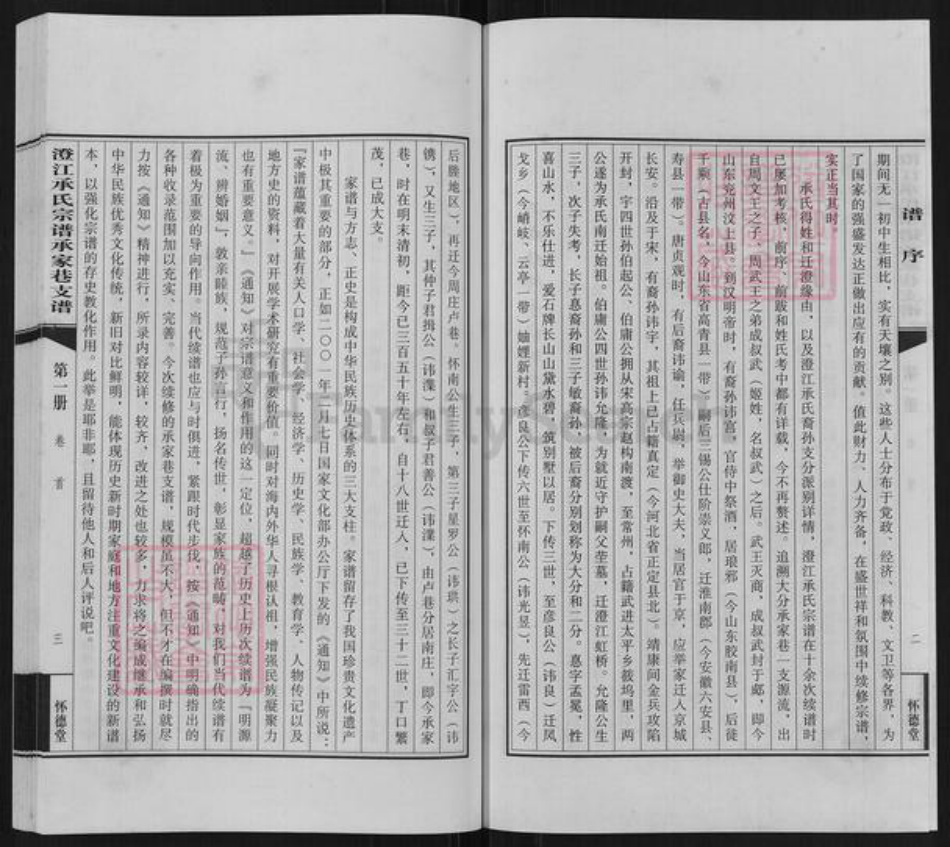 谱序
二
怀德堂
期间无一初中生相比，实有天壤之别。这些人士分布于党政、经济、科教、文卫等各界，为
了国家的强盛发达正做出应有的贡献。值此财力、人力齐备，在盛世祥和氛围中续修宗谱，
实正当其时。
承氏得姓和迁澄缘由，以及澄江承氏裔孙支分派别详情，澄江承氏宗谱在十余次续谱时
已屡加考核，前序、前跋和姓氏考中都有详载，今不再赘述。追溯大分承家巷一支源流，出
自周文王之子、周武王之弟成叔武（姬姓，名叔武）之后。武王灭商，成叔武封于郕，即今
山东兖州汶上县。到汉明帝时，有裔孙讳宫，官侍中祭酒，居琅邪（今山东胶南县），后徙
千乘（古县名，今山东省高青县一带）。嗣后三锡公仕阶崇义郎，迁淮南郡（今安徽六安县、
寿县一带）。唐贞观时，有后裔讳谕，任兵尉，举御史大夫，当居官于京，应举家迁入京城
长安。沿及于宋，有裔孙讳宇，其祖上已占籍真定（今河北省正定县北）。靖康间金兵攻陷
开封，宇四世孙伯起公、伯庸公拥从宋高宗赵构南渡，至常州，占籍武进太平乡筱坞里，两
公遂为承氏南迁始祖。伯庸公四世孙讳允隆，为就近守护嗣父茔墓，迁澄江虹桥。允隆公生
三子，次子失考，长子惪裔孙和三子敏裔孙，被后裔分别划称为大分和二分。惪字孟冕，性
喜山水，不乐仕进，爱石牌长山山黛水碧，筑别墅以居。下传三世，至彦良公（讳良）迁凤
戈乡（今峭岐、云亭一带）妯娌新村。彦良公下传六世至怀南公（讳光昱），先迁雷西（今
后塍地区），再迁今周庄卢巷。怀南公生三子，第三子星罗公（讳珙）之长子汇字公（讳
镌），又生三子，其仲子君揖公（讳渫）和叔子君善公（讳濼），由卢巷分居南庄，即今承家
巷，时在明末清初，距今已三百五十年左右。自十八世迁入，已下传至三十二世，丁口繁
茂，已成大支。
家谱与方志、正史是构成中华民族历史体系的三大支柱。家谱留存了我国珍贵文化遗产
中极其重要的部分，正如二〇〇一年二月七日国家文化部办公厅下发的《通知》中所说：
『家谱蕴藏着大量有关人口学、社会学、经济学、历史学、民族学、教育学、人物传记以及
地方史的资料，对开展学术研究有重要价值。同时对海内外华人寻根认祖，增强民族凝聚力
也有重要意义。』《通知》对宗谱意义和作用的这一定位，超越了历史上历次续谱为『明源
流、辨婚姻』，敦亲睦族，规范子孙言行，扬名传世，彰显家族的范畴，对我们当代续谱有
着极为重要的导向作用。当代续谱也应与时俱进，紧跟时代步伐，按《通知》中明确指出的
各种收录范围加以充实、完善。今次续修的承家巷支谱，规模虽不大，但不才在编撰时就尽
力按《通知》精神进行，所录内容较详，较齐，改进之处也较多，力求将之编成继承和弘扬
中华民族优秀文化传统，新旧对比鲜明，能体现历史新时期家庭和地方注重文化建设的新谱
本，以强化宗谱的存史教化作用。此举是耶非耶，且留待他人和后人评说吧。
澄江承氏宗谱承家巷支谱
第一册
卷首
三
怀德堂
FamilySearch